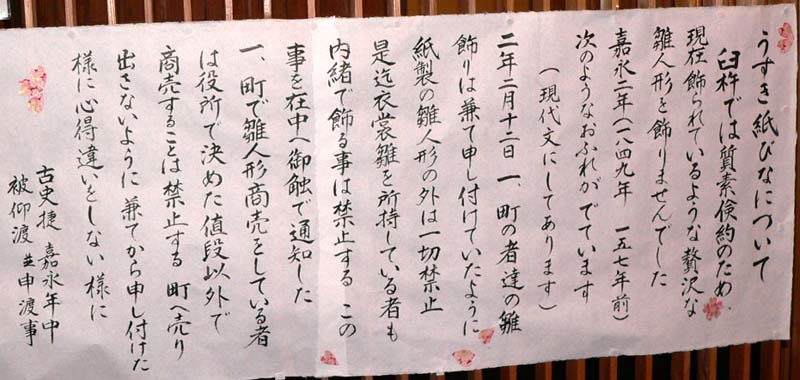 うすき紙びなについて
臼杵では質素倹約のため、
現在飾られているような贅沢な
雛人形を飾りませんでした
嘉永二年(一八四九年 一五七年前)
次のようなおふれがでています
(現代文にしてあります)
二年二月十二日 一、町の者達の雛
飾りは兼て申し付けていたように
紙製の雛人形の外は一切禁止
是迄衣裳雛を所持している者も
内緒で飾る事は禁止する この
事を在中へ御触で通知した
一、町で雛人形商売をしている者
は役所で決めた値段以外で
商売することは禁止する 町へ売り
出さないように兼てから申し付けた
様に心得違いをしない様に
古史捷 嘉永年中
被仰渡並申渡事